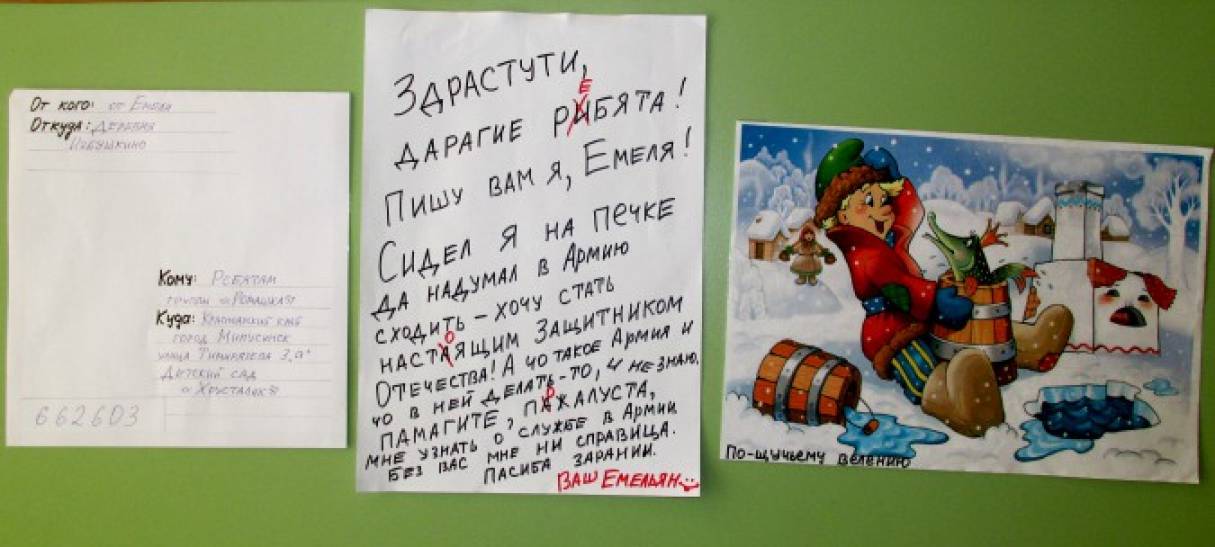 От кого: от Емели
Откуда: Деревня
Избушкино
Кому: Ребятам
группы «Ромашка»
Куда: Красноярский край
город Минусинск
улица Тимирязева 3,а"
Детский сад
«Хрусталёк»
662603
Здрастути,
дарагие рЕбята!
Пишу вам я, Емеля!
Сидел я на печке
да надумал в Армию
сходить – хочу стать
настоящим Защитником
Отечества! А чо такое Армия и
чо в ней делать-то, и не знаю.
Памагите, пажалуста,
мне узнать о службе в Армии
без вас мне ни справица.
Пасиба зарании.
Ваш Емельян
По-щучьему велению